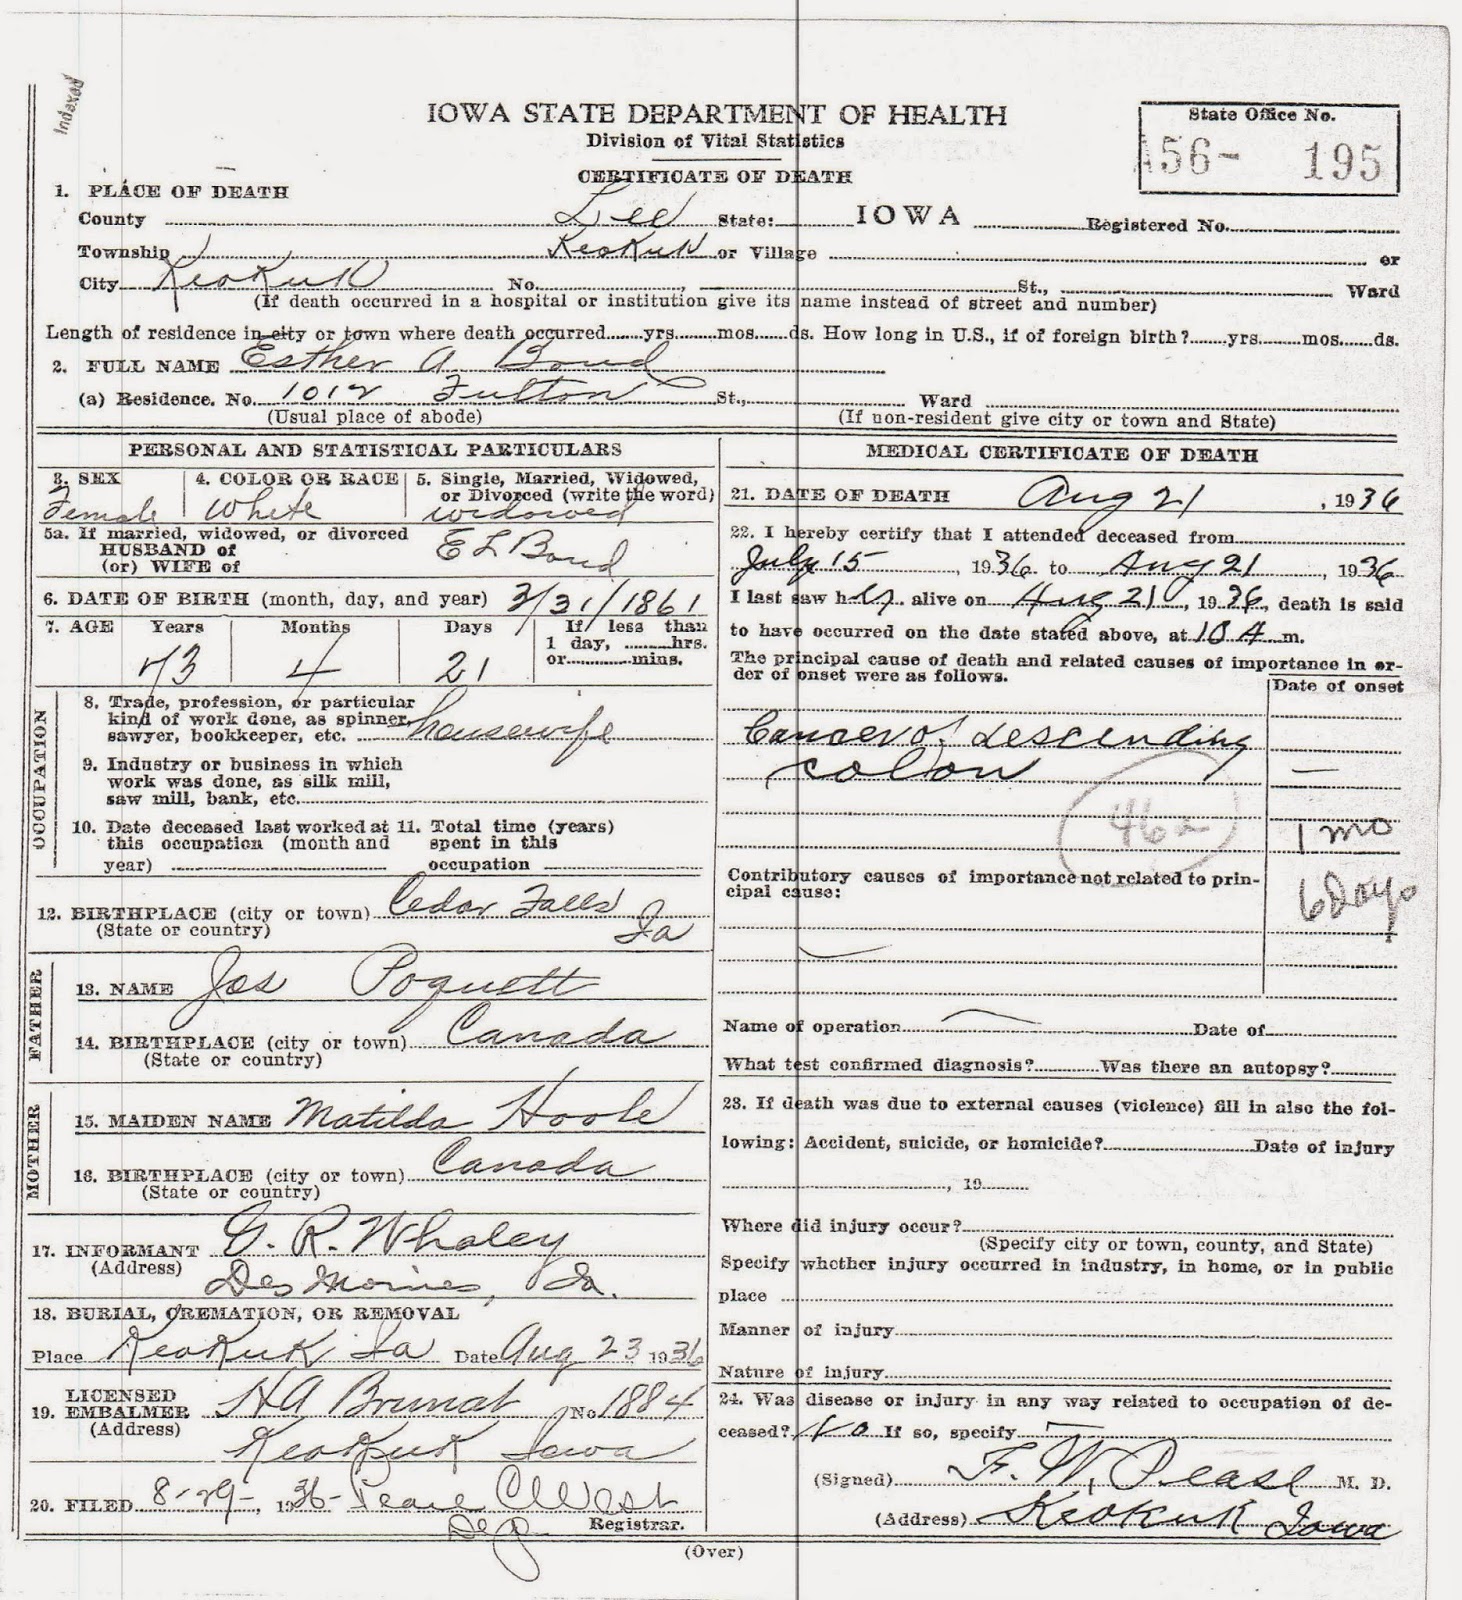 Indexed
IOWA STATE DEPARTMENT OF HEALTH
Division of Vital Statistics
CERTIFICATE OF DEATH
State Office No.
56- 195
1. PLACE OF DEATH
County Lee State: IOWA Registered No.
Township Keokuk or Village or
City Keokuk No. , St., Ward
(If death occurred in a hospital or institution give its name instead of street and number)
Length of residence in city or town where death occurred yrs. mos. ds. How long in U.S., if of foreign birth? yrs. mos. ds.
2. FULL NAME Esther A Bond
(a) Residence. No. 1012 Fulton St., Ward
(Usual place of abode) (If non-resident give city or town and State)
PERSONAL AND STATISTICAL PARTICULARS
3. SEX 4. COLOR OR RACE 5. Single, Married, Widowed, or Divorced (write the word)
Female White widowed
5a. If married, widowed, or divorced
HUSBAND of
(or) WIFE of E L Bond
6. DATE OF BIRTH (month, day, and year) 3/31/1861
7. AGE Years Months Days If less than
1 day, hrs.
or mins.
73 4 21
OCCUPATION
8. Trade, profession, or particular
kind of work done, as spinner,
sawyer, bookkeeper, etc. housewife
9. Industry or business in which
work was done, as silk mill,
saw mill, bank, etc.
10. Date deceased last worked at
this occupation (month and
year)
11. Total time (years)
spent in this
occupation
12. BIRTHPLACE (city or town) Cedar Falls
(State or country) Ia
FATHER
13. NAME Jos Poquett
14. BIRTHPLACE (city or town) Canada
(State or country)
MOTHER
15. MAIDEN NAME Matilda Hoole
16. BIRTHPLACE (city or town) Canada
(State or country)
17. INFORMANT G. R. Whaley
(Address) Des Moines, Ia.
18. BURIAL, CREMATION, OR REMOVAL
Place Keokuk Ia Date Aug 23 1936
19. LICENSED EMBALMER H A No 1884
(Address) Keokuk Iowa
20. FILED 8-29-, 1936 C West
Registrar.
MEDICAL CERTIFICATE OF DEATH
21. DATE OF DEATH Aug 21, 1936
22. I hereby certify that I attended deceased from
July 15, 1936 to Aug 21, 1936
I last saw her alive on Aug 21, 1936, death is said
to have occurred on the date stated above, at 10 A m.
The principal cause of death and related causes of importance in or-
der of onset were as follows.
Date of onset
Cancer of descending
colon —
46a
1 mo
Contributory causes of importance not related to prin-
cipal cause:
6 Days
Name of operation Date of
What test confirmed diagnosis? Was there an autopsy?
23. If death was due to external causes (violence) fill in also the fol-
lowing: Accident, suicide, or homicide? Date of injury
, 19
Where did injury occur?
(Specify city or town, county, and State)
Specify whether injury occurred in industry, in home, or in public
place
Manner of injury
Nature of injury
24. Was disease or injury in any way related to occupation of de-
ceased? No If so, specify
(Signed) F. W. Pease M. D.
(Address) Keokuk Iowa
(Over)